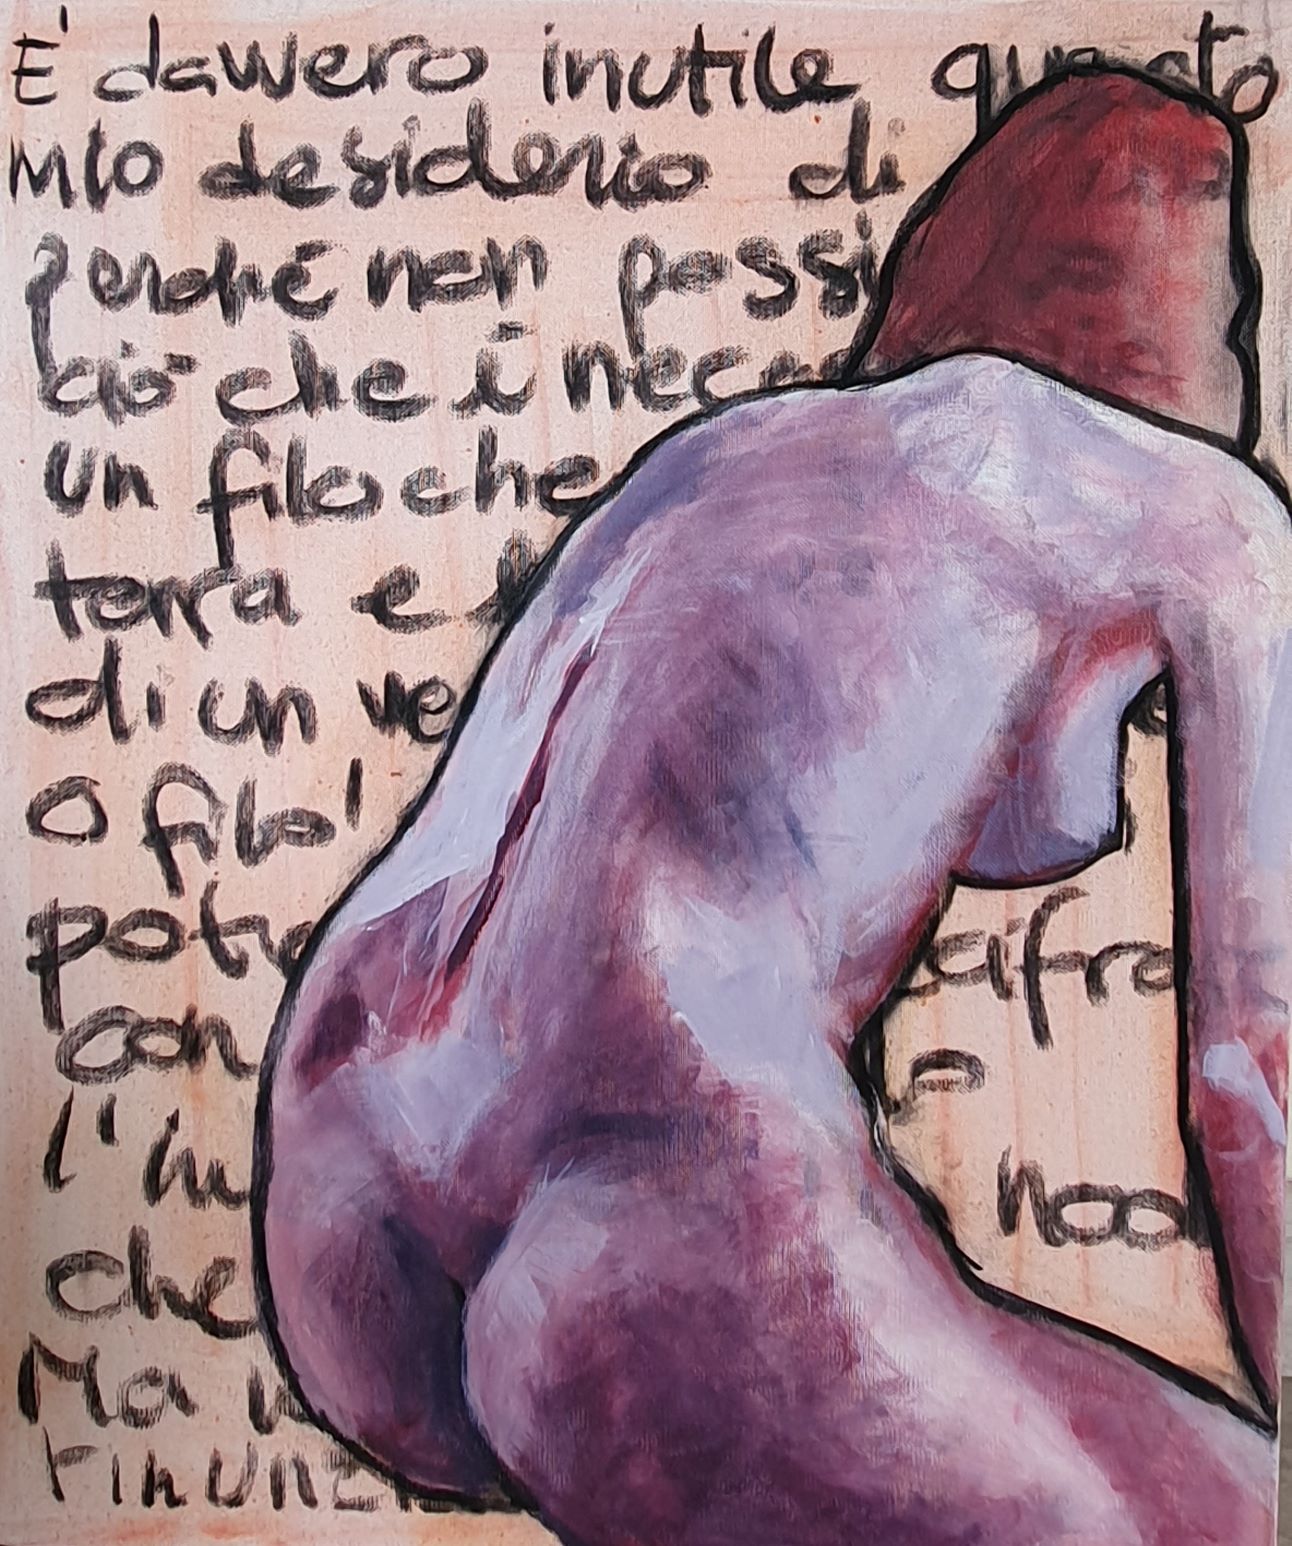 E' davvero inutile questo
mio desiderio di
perché non possi
ciò che è nece
un filo che
terra e
di un ve
O filo'
potre cifra
con
l'in nod
che
Ma
rinunz